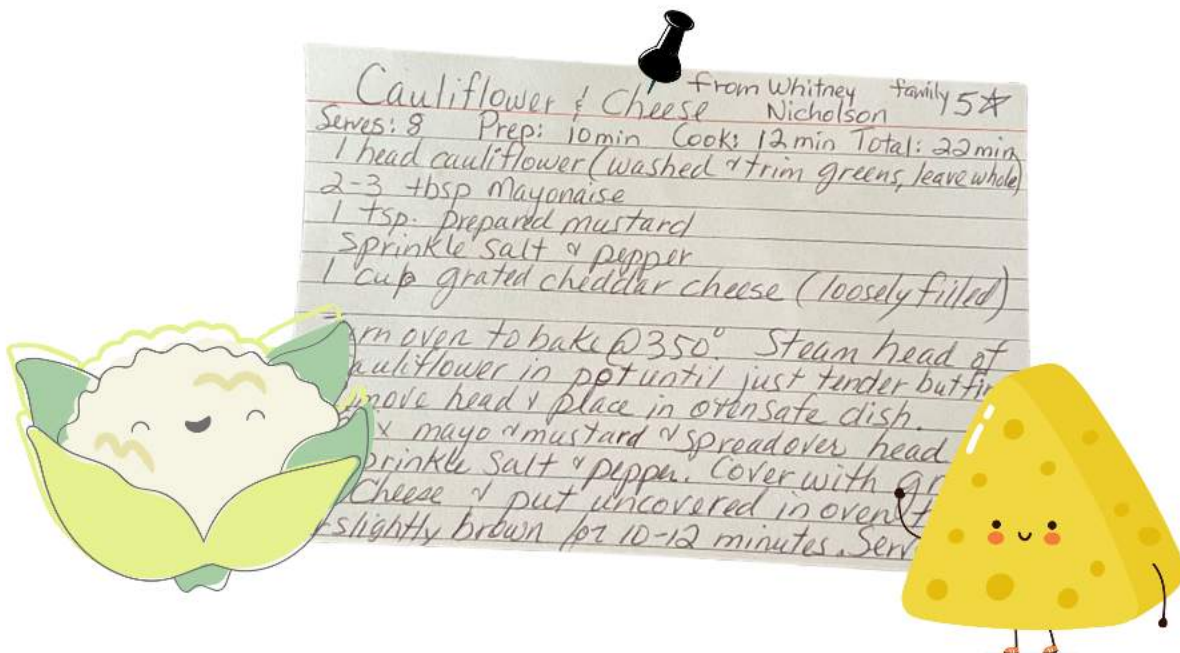 Cauliflower & Cheese from Whitney Nicholson family 5☆
Serves: 8 Prep: 10 min Cook: 12 min Total: 22 min
1 head cauliflower (washed & trim greens, leave whole)
2-3 tbsp Mayonaise
1 tsp. prepared mustard
Sprinkle salt & pepper
1 cup grated cheddar cheese (loosely filled)
oven to bake @ 350°. Steam head of
in pot until just tender but
head & place in oven safe dish.
mayo & mustard & spread over head
salt & pepper. Cover with
Cheese & put uncovered in oven
slightly brown for 10-12 minutes.